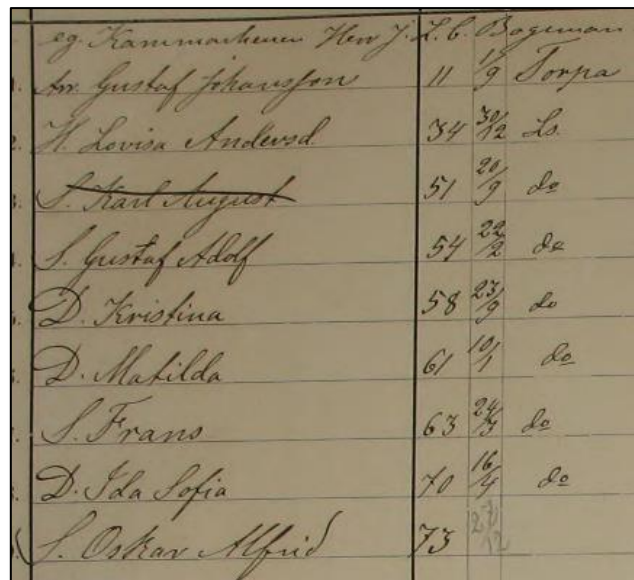 eg. Kammarherren Herr J. L. C. Bogeman
1. Arr. Gustaf Johansson 11 1/9 Torpa
2. H. Lovisa Andersd. 34 30/12 Ls.
3. S. Karl August 51 20/9 do
4. S. Gustaf Adolf 54 22/2 do
5. D. Kristina 58 23/9 do
D. Matilda 61 10/1 do
S. Frans 63 do
D. Ida Sofia 70 16/4 do
S. Oskar Alfrid 73 27/12